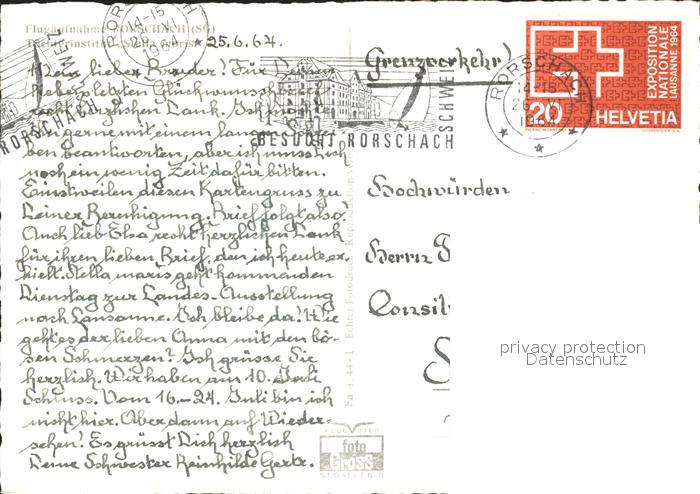 Flugaufnahme RORSCHACH (SG)
Töchterinstitut Stella Maris
25.6.64.
Mein lieber Bruder! Für Deinen
lieben letzten Glückwunschbrief
recht herzlichen Dank. Ich möchte
ihn gerne mit einem langen Schrei-
ben beantworten, aber ich muss Dich
noch ein wenig Zeit dafür bitten.
Einstweilen diesen Kartengruss zu
Deiner Beruhigung. Brief folgt also!
Auch lieb Elsa recht herzlichen Dank
für ihren lieben Brief, den ich heute er-
hielt. Stella maris geht kommenden
Dienstag zur Landes-Ausstellung
nach Lausanne. Ich bleibe da! Wie
geht es der lieben Anna mit den bö-
sen Schmerzen? Ich grüsse Sie
herzlich. Wir haben am 10. Juli
Schluss. Vom 16.-24. Juli bin ich
nicht hier. Aber dann auf Wieder-
sehen! Es grüsst Dich herzlich
Deine Schwester Reinhilde Gertr.
Fa 4.44-1 Echter Fotodruck Reproduktionen
FLUGBILD
foto
Gross
ST.GALLEN-O
RORSCHACH
14-15
RORSCHACH
BESUCHT RORSCHACH
SCHWEIZ
RORSCHACH
14-15
1964
EXPOSITION
NATIONALE
LAUSANNE 1964
20 HELVETIA
Grenzverkehr!
Hochwürden
Herrn
Consit
privacy protection
Datenschutz